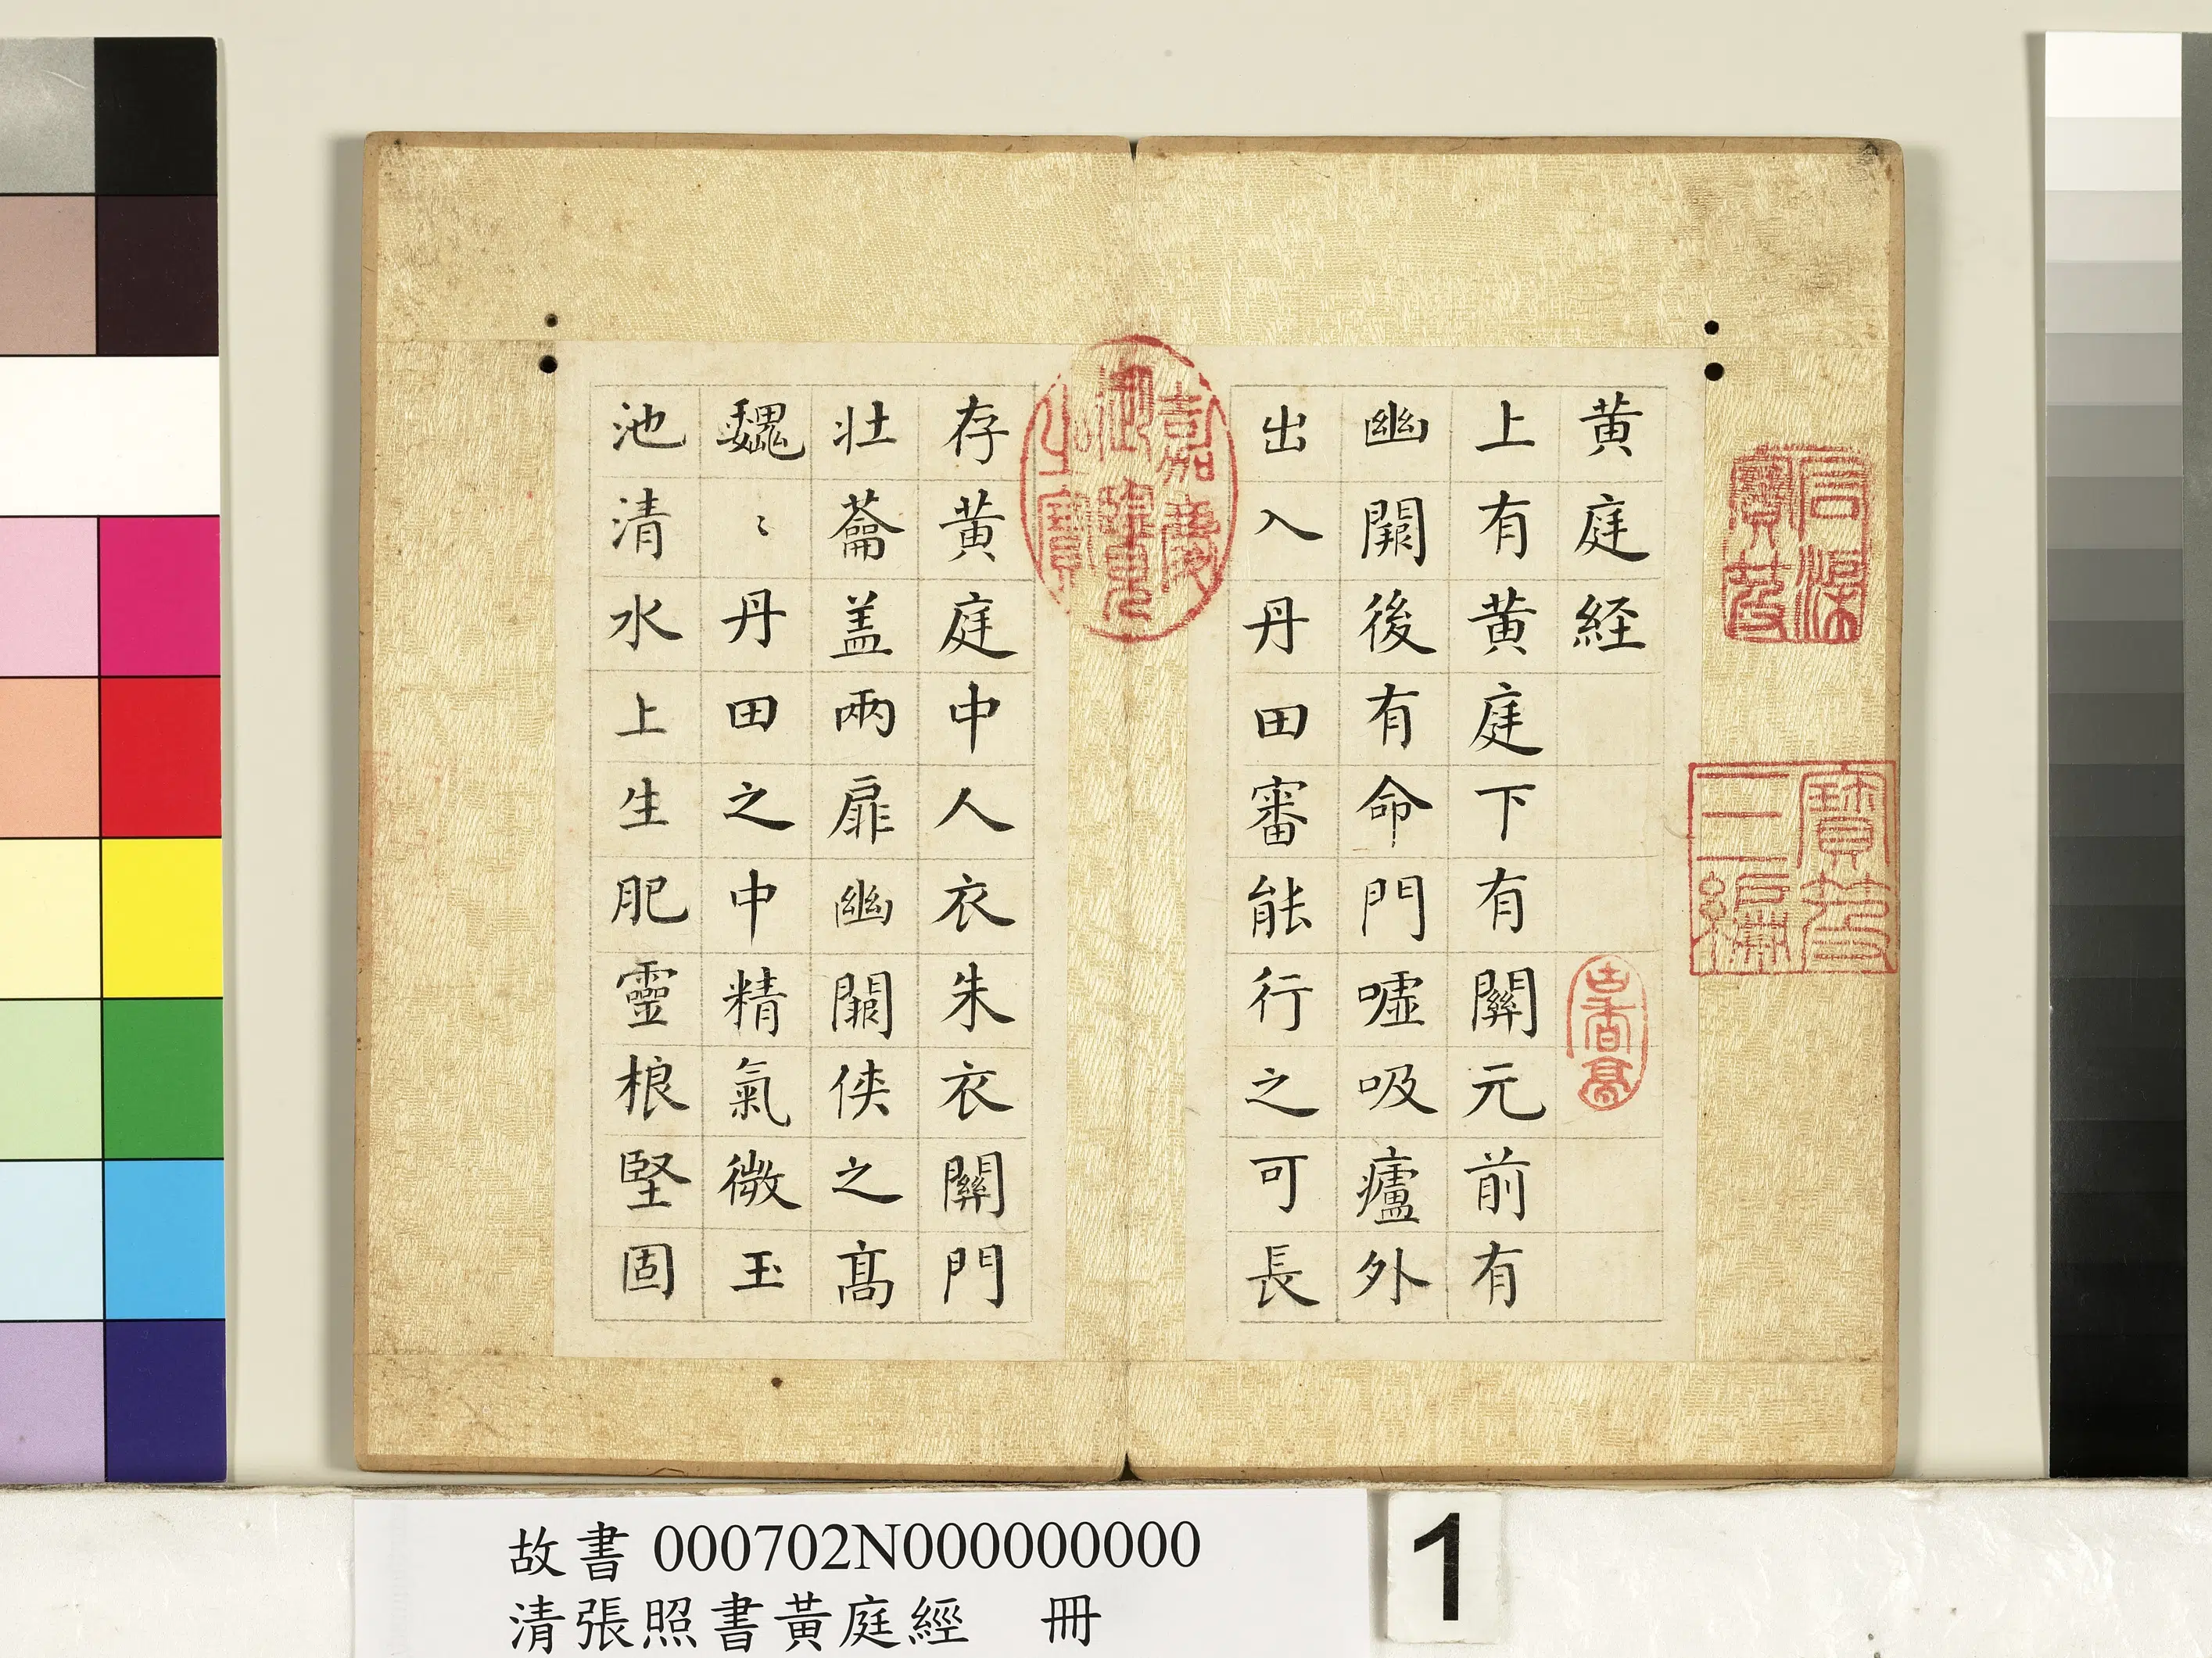 石渠寶笈
寶笈三編
黄庭経
上有黄庭下有關元前有
幽闕後有命門噓吸廬外
出入丹田審能行之可長
嘉慶御覽之寶
存黄庭中人衣朱衣關門
壯蘥盖兩扉幽闕俠之髙
魏〻丹田之中精氣微玉
池清水上生肥靈根堅固
故書 000702N000000000
清張照書黃庭經　冊
1